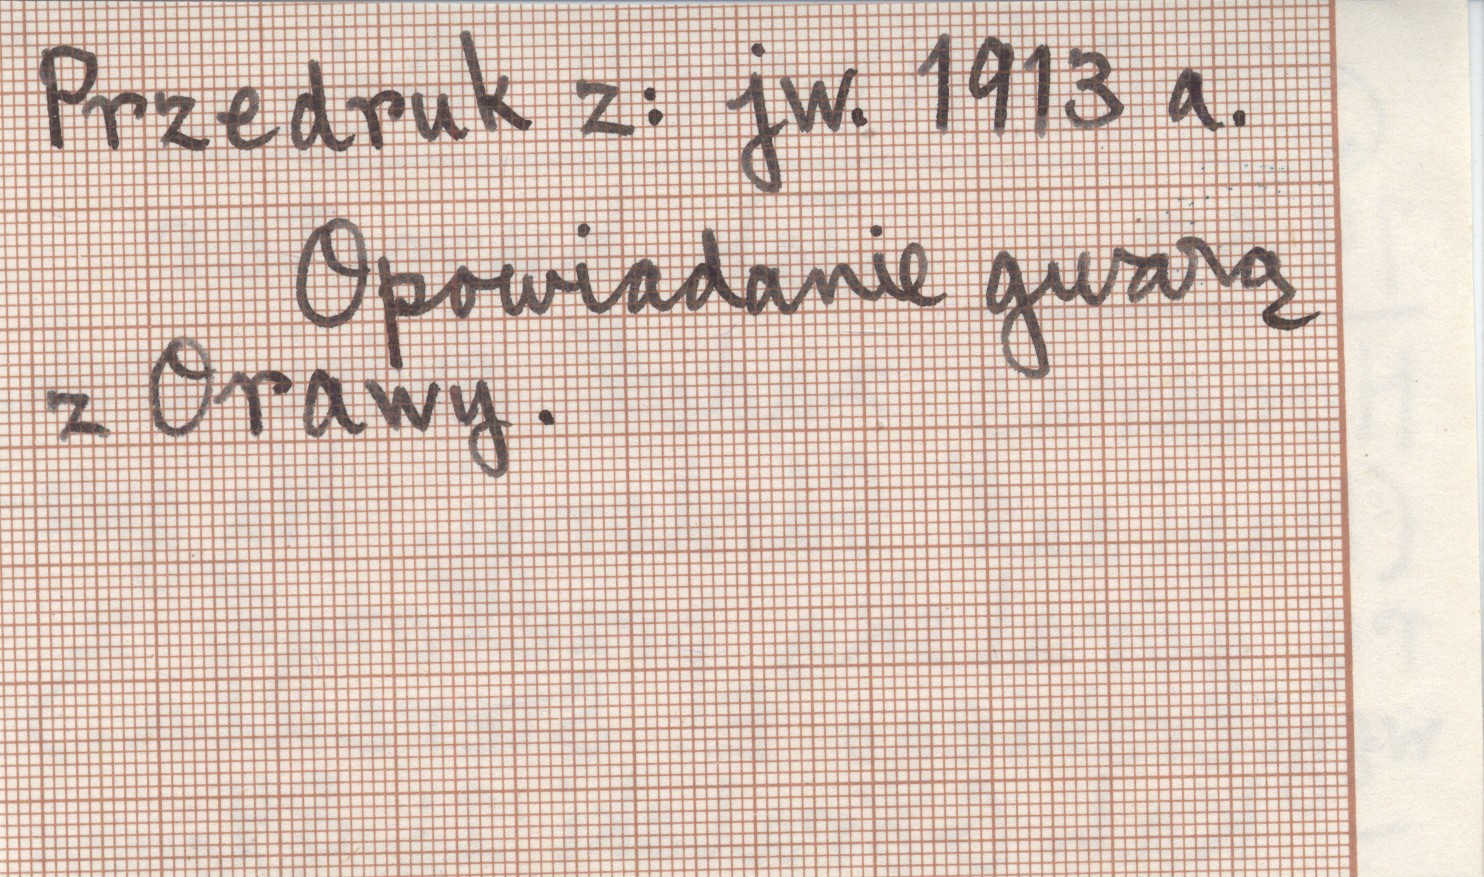 Przedruk z: jw. 1913 a.
Opowiadanie gwarą
z Orawy.